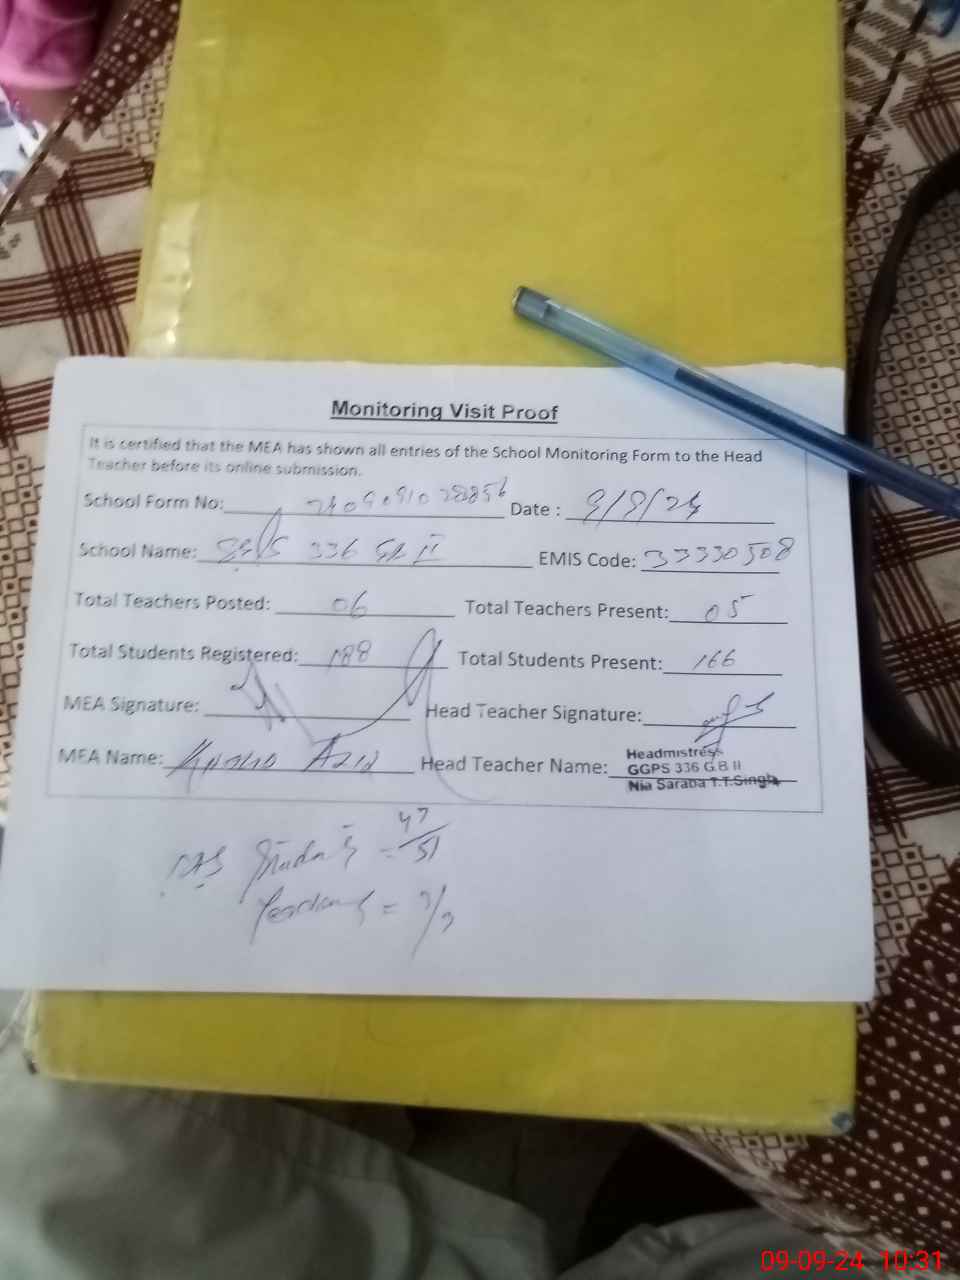 Monitoring Visit Proof
It is certified that the MEA has shown all entries of the School Monitoring Form to the Head
Teacher before its online submission.
School Form No: Date : 9/9/24
School Name: GGPS 336 GB II EMIS Code: 33330508
Total Teachers Posted: 06 Total Teachers Present: 05
Total Students Registered: 188 Total Students Present: 166
MEA Signature: Head Teacher Signature:
MEA Name: Head Teacher Name:
Headmistress
GGPS 336 G.B II
Nia Saraba T.T.Singh
Students = 47/51
Teachers =
09-09-24 10:31